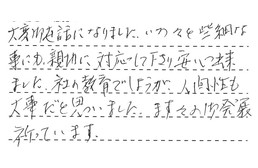 大変お世話になりました。いつも些細な
事にも親切に対応して下さり安心して来
ました。社の教育でしょうが、人間性も
大事だと思いました。ますますの御発展
祈っています。